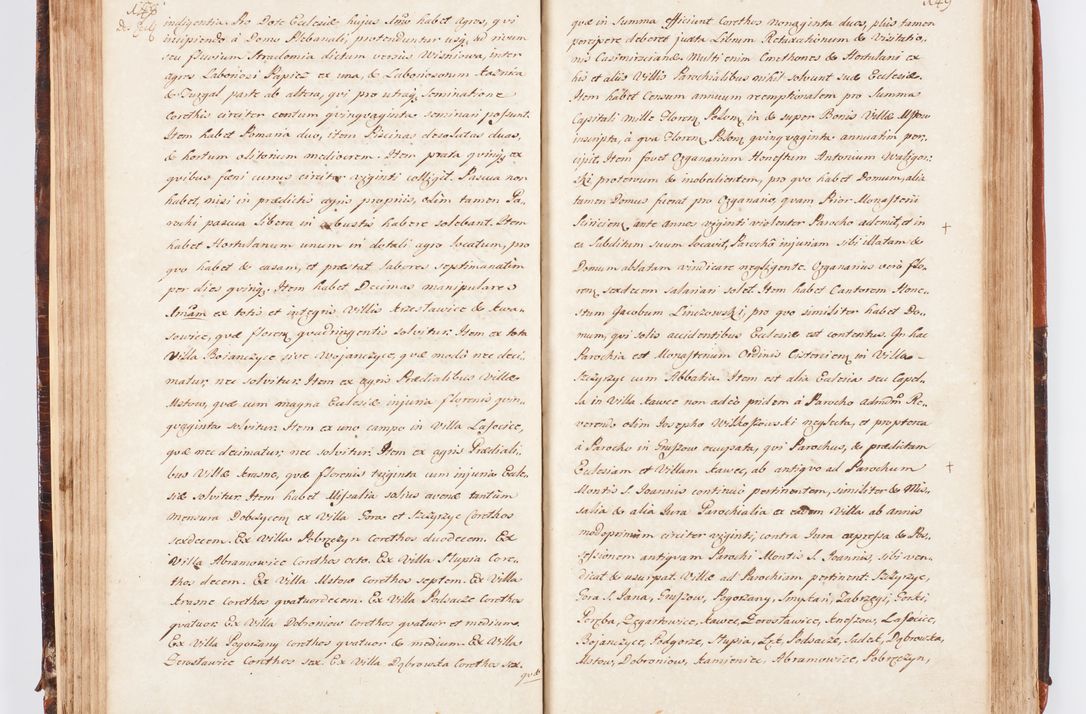 indigentia. Pro Dote Ecclesiæ hujus Anno habet agros, qvi
incipiendo à Domo Plebanali, protenduntur usq; ad rivum
seu fluvium Stradomia dictum versus Wisniowa, inter
agros Laboriosi Papież ex una, & Laboriosorum Kaznica
& Burgal parte ab altera, qvi pro utraq; Seminatione
Corethis circiter centum qvinqvaginta seminari possunt.
Item habet Pomaria duo, item Piscinas desolatas duas,
& hortum olitorium mediocrem. Item prata qvinq; ex
qvibus fæni currus circiter viginti colligit. Pascua non
habet, nisi in prædictis agris propriis, olim tamen Pa-
rochi pascua libera in rubustis habere solebant. Item
habet Hortulanum unum in dotali agro locatum, pro
qvo habet & casam, et præstat labores septimanatim
per dies qvinq;. Item habet Decimas manipulares
ex totis et integris Villis Krzesławice & Kwa-
sowice, qvæ florenis qvadringentis solvitur. Item ex tota
Villa Bojanczyce sive Wojanczyce, qvæ modò nec deci-
matur, nec solvitur. Item ex agris Prædialibus Villæ
Mstow, qvæ cum magna Ecclesiæ injuria florenis qvin-
qvaginta solvitur. Item ex uno campo in Villa Lasocice,
qvæ nec decimatur, nec solvitur. Item ex agris Prædiali-
bus Villæ Krasne, qvæ florenis triginta cum injuria Eccle-
siæ solvitur. Item habet Missalia solius avenæ tantùm
mensura Dobszycen: ex Villa Gora et Szczyrzyc Corethos
sexdecem. Ex Villa Pobrzczyn Corethos duodecem. Ex
Villa Abramowice Corethos octo. Ex Villa Słupia Core-
thos decem. Ex Villa Mstow Corethos septem. Ex Villa
Krasne Corethos qvatuordecem. Ex Villa Podsacze Corethos
qvatuor. Ex Villa Dobroniow Corethos qvatuor et medium.
Ex Villa Pogorzany Corethos qvatuor & medium. Ex Villa
Zerosławice Corethos sex. Ex Villa Dąbrowska Corethos sex.
qvæ
qvæ in Summa efficiunt Corethos nonaginta duos, plùs tamen
percipere deberet juxta Librum Retaxationum & Visitatio-
nis Casimirsciana. Multi enim Cmethones & Hortulani ex
his et aliis Villis Parochialibus nihil solvunt suæ Ecclesiæ.
Item habet Censum annuum reemptionalem pro Summa
Capitali mille Floren: Polon: in & super Bonis Villæ Mstow
inscripta, à qva Floren: Polon: qvinqvaginta annuatim per-
cipit. Item fovet Organarium Honestum Antonium Waligor-
ski protervum & inobedientem, pro qvo habet Domum, alia
tamen Domus fuerat pro Organario, qvam Prior Monasterii
Sciricien: ante annos viginti violenter Parocho ademit, et in
ea Subditum suum locavit, Parocho injuriam sibi illatam &
Domum ablatam vindicare negligente. Organarius verò flo-
ren: sexdecem salariari solet. Item habet Cantorem Hone-
stum Jacobum Linczowski, pro qvo similiter habet Do-
mum, qvi solis accidentibus Ecclesiæ est contentus. In hac
Parochia est Monasterium Ordinis Cisterciens: in Villa
Szczyrzyc cum Abbatia. Item est alia Ecclesia seu Capel-
la in Villa Kawce non adeò pridem à Parocho admodùm Re-
verendo olim Josepho Wilkoszowski neglecta, et propterea
à Parocho in Gruszow occupata, qvi Parochus, & prædictam
Ecclesiam et Villam Kawec, ab antiqvo ad Parochum
Montis S. Joannis continuò pertinentem, similiter & Mis-
salia & alia Jura Parochialia ex eadem Villa ab annis
modoprimùm circiter viginti, contra Jura expressa & Pos-
sessionem antiqvam Parochi Montis S. Joannis, sibi ven-
dicat & usurpat. Villæ ad Parochiam pertinent: Szczyrzyc,
Gora S. Jana, Gruszow, Pogorzany, Smykań, Zabrzegi, Gorki,
Poręba, Zegartowice, Kawec, Zerosławice, Kneszow, Lasocice,
Bojanczyce, Podgorze, Słupia, Lęk, Podsacze, Sadek, Dąbrowska,
Mstow, Dobroniow, Kamieniec, Abramowice, Pobręczyn,